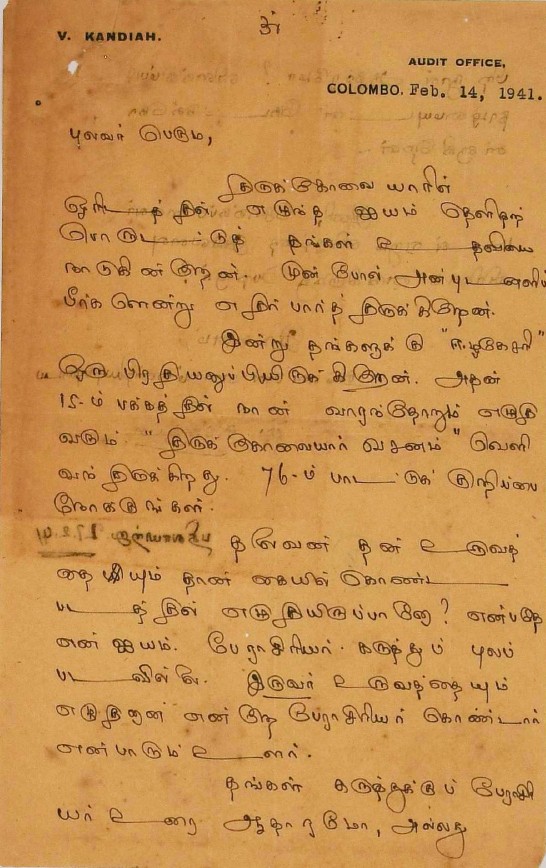 V. KANDIAH.
AUDIT OFFICE,
COLOMBO. Feb. 14, 1941.
புலவர் பெரும,
திருக்கோவை யாரில்
ஓரிடத்தில் எழுந்த ஐயம் தெளிதற்
பொருட்டுத் தங்கள் உதவியை
நாடுகின்றேன். முன் போல் அன்புடனளிப்
பீர்களென்று எதிர் பார்த் திருக்கிறேன்.
இன்று தங்களுக்கு "ஈழகேசரி"
ஒரு பிரதியனுப்பியிருக்கிறேன். அதன்
15-ம் பக்கத்தில் நான் வாரந்தோறும் எழுதி
வரும் "திருக்கோவையார் வசனம்" வெளி
வந்திருக்கிறது. 76-ம் பாட்டுக் குறிப்பை
நோக்குங்கள்.
தலைவன் தன் உருவத்
தையும் தான் கையில் கொண்ட
படத்தில் எழுதியிருப்பானோ? என்பதே
என் ஐயம். பேராசிரியர் கருத்துப் புலப்
படவில்லை. இருவர் உருவத்தையும்
எழுதினான் என்றே பேராசிரியர் கொண்டார்
என்பாரும் உளர்.
தங்கள் கருத்துக்குப் பேராசிரி
யர் உரை ஆதாரமோ, அல்லது